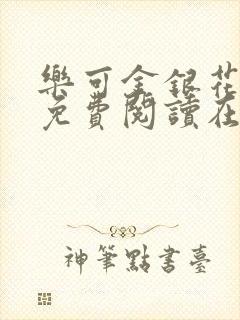 樂可金銀花
免費閱讀在
神筆點書臺